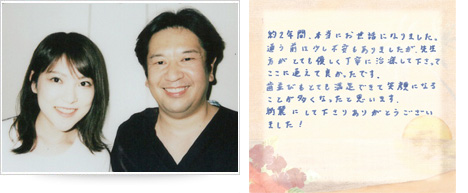 約2年間、本当にお世話になりました。
通う前は少し不安もありましたが、先生
方がとても優しく丁寧に治療して下さって
ここに通えて良かったです。
歯並びもとても満足できて笑顔になる
ことが多くなったと思います。
綺麗にして下さりありがとうござい
ました!